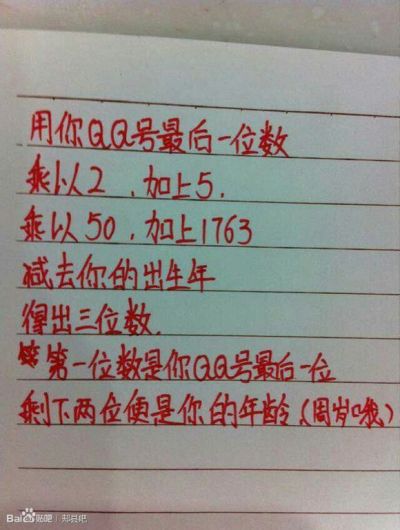 用你QQ号最后一位数
乘以2，加上5，
乘以50，加上1763
减去你的出生年
得出三位数，
第一位数是你QQ号最后一位
剩下两位便是你的年龄（周岁哦）
Bai 贴吧 | 郏县吧